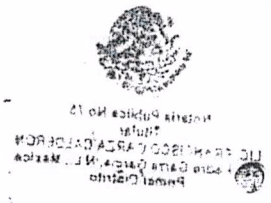 Notaria Publica No 75
Titular
LIC FRANCISCO GARZA CALDERON
Pedro Garza Garcia, N.L., Mexico
Primer Distrito